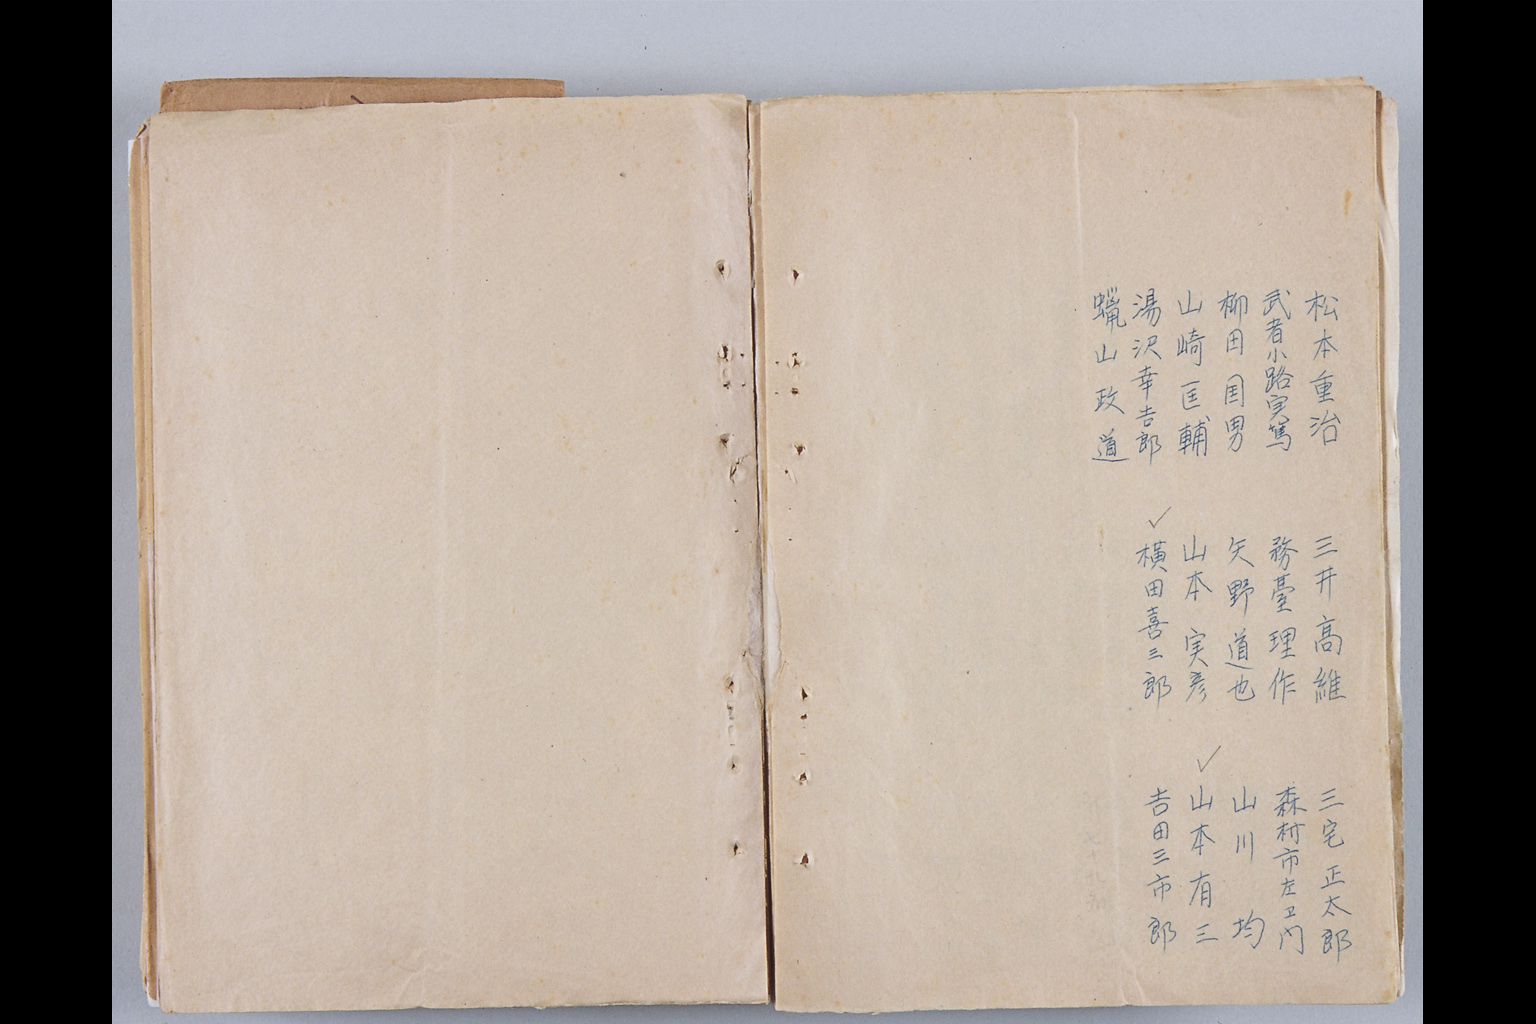 松本重治 三井高維 三宅正太郎
武者小路実篤 務臺理作 森村市左卫门
柳田国男 矢野道也 山川均
山崎匡輔 山本実彦 ✓山本有三
湯沢幸吉郎 ✓横田喜三郎 吉田三市郎
蠟山政道